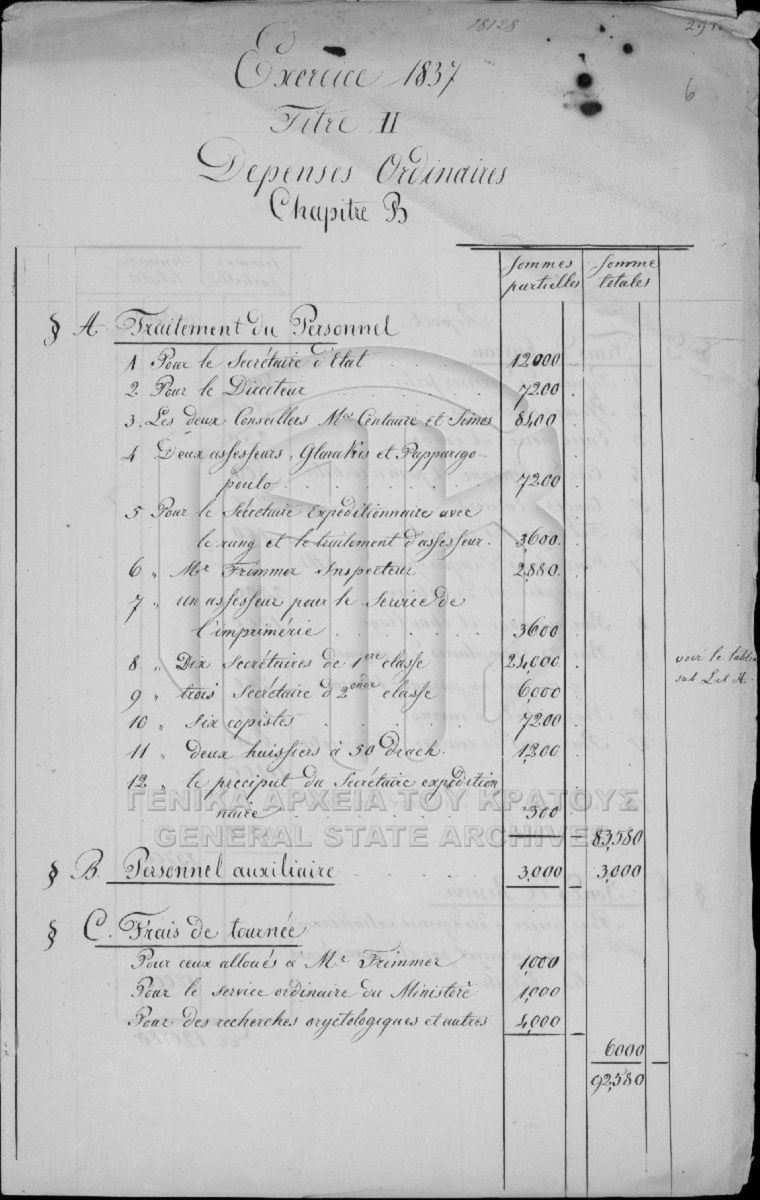 18128
6
Exercice 1837
Titre II
Depenses Ordinaires
Chapitre B
Sommes partielles
Somme totales
§ A. Traitement du Personnel
1. Pour le Secrétaire d'Etat . . . . 12,000
2. Pour le Directeur . . . . 7200
3. Les deux Conseillers Mrs Centaure et Simos 8400
4 Deux assesseurs, Glarakis et Papparigo-
poulo . . . . 7200
5 Pour le Sécretaire expeditionnaire avec
le rang et le traitement d'assesseur. 3,600
6 " Mr Frimmer Inspecteur 2880
7 " un assesseur pour le Service de
l'imprimérie . . . . 3600
8. " Dix Secrétaires de 1ere classe 24,000
9 " trois Secrétaire d 2onde classe 6,000
10 " Six copistes . . . . 7200
11 " deux huissiers à 50 drach. 1,200
12 " le preciput du Secrétaire expedition
naire . . . . 300
83,580
voir le table
sub Lit A.
§ B. Personnel auxiliaire . . . . 3,000 3,000
§ C. Frais de tournée
Pour ceux alloués à Mr Frimmer 1,000
Pour le service ordinaire du Ministerè 1,000
Pour des recherches oryctologiques et autres 4,000
6000
92,580
ΓΕΝΙΚΑ ΑΡΧΕΙΑ ΤΟΥ ΚΡΑΤΟΥΣ
GENERAL STATE ARCHIVES